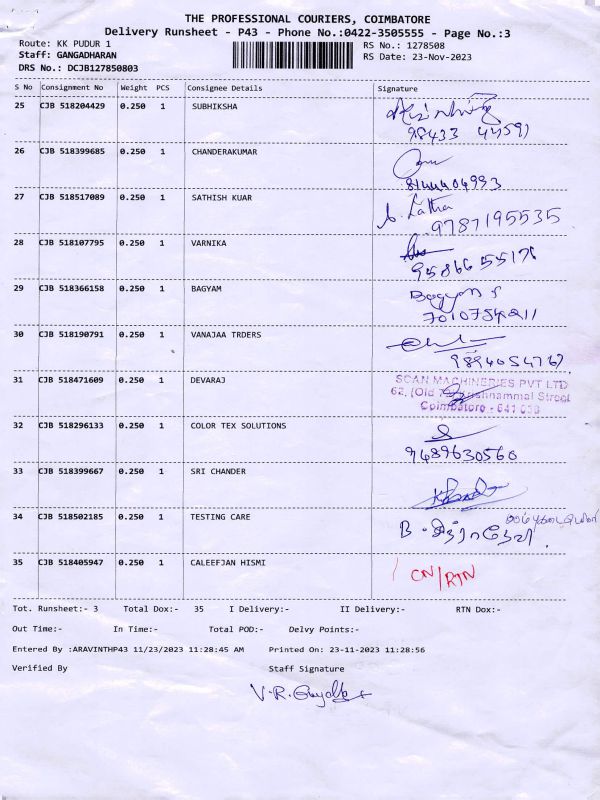 THE PROFESSIONAL COURIERS, COIMBATORE
Delivery Runsheet - P43 - Phone No.:0422-3505555 - Page No.:3
Route: KK PUDUR 1
RS No.: 1278508
Staff: GANGADHARAN
RS Date: 23-Nov-2023
DRS No.: DCJB127850803
S No Consignment No Weight PCS Consignee Details Signature
25 CJB 518204429 0.250 1 SUBHIKSHA
98433 44591
26 CJB 518399685 0.250 1 CHANDERAKUMAR
8144404993
27 CJB 518517089 0.250 1 SATHISH KUAR
A. Latha
9787195535
28 CJB 518107795 0.250 1 VARNIKA
95866 55176
29 CJB 518366158 0.250 1 BAGYAM
Bagyam S
7010754211
30 CJB 518190791 0.250 1 VANAJAA TRDERS
9894054767
31 CJB 518471609 0.250 1 DEVARAJ
SCAN MACHINERIES PVT LTD
62, (Old Krishnammal Street
Coimbatore - 641 038
32 CJB 518296133 0.250 1 COLOR TEX SOLUTIONS
9489630560
33 CJB 518399667 0.250 1 SRI CHANDER
34 CJB 518502185 0.250 1 TESTING CARE
B. சித்ராதேவி
35 CJB 518405947 0.250 1 CALEEFJAN HISMI
CN/RTN
Tot. Runsheet:- 3 Total Dox:- 35 I Delivery:- II Delivery:- RTN Dox:-
Out Time:- In Time:- Total POD:- Delvy Points:-
Entered By :ARAVINTHP43 11/23/2023 11:28:45 AM Printed On: 23-11-2023 11:28:56
Verified By Staff Signature